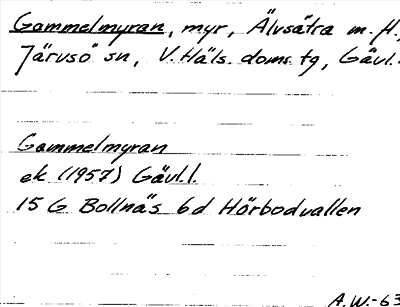 Gammelmyran, myr, Älvsätra m.fl.,
Järvsö sn, V. Häls. doms. tg, Gävl.
Gammelmyran
ek (1957) Gävl.l.
15 G Bollnäs 6d Hårbodvallen
A.W.-63